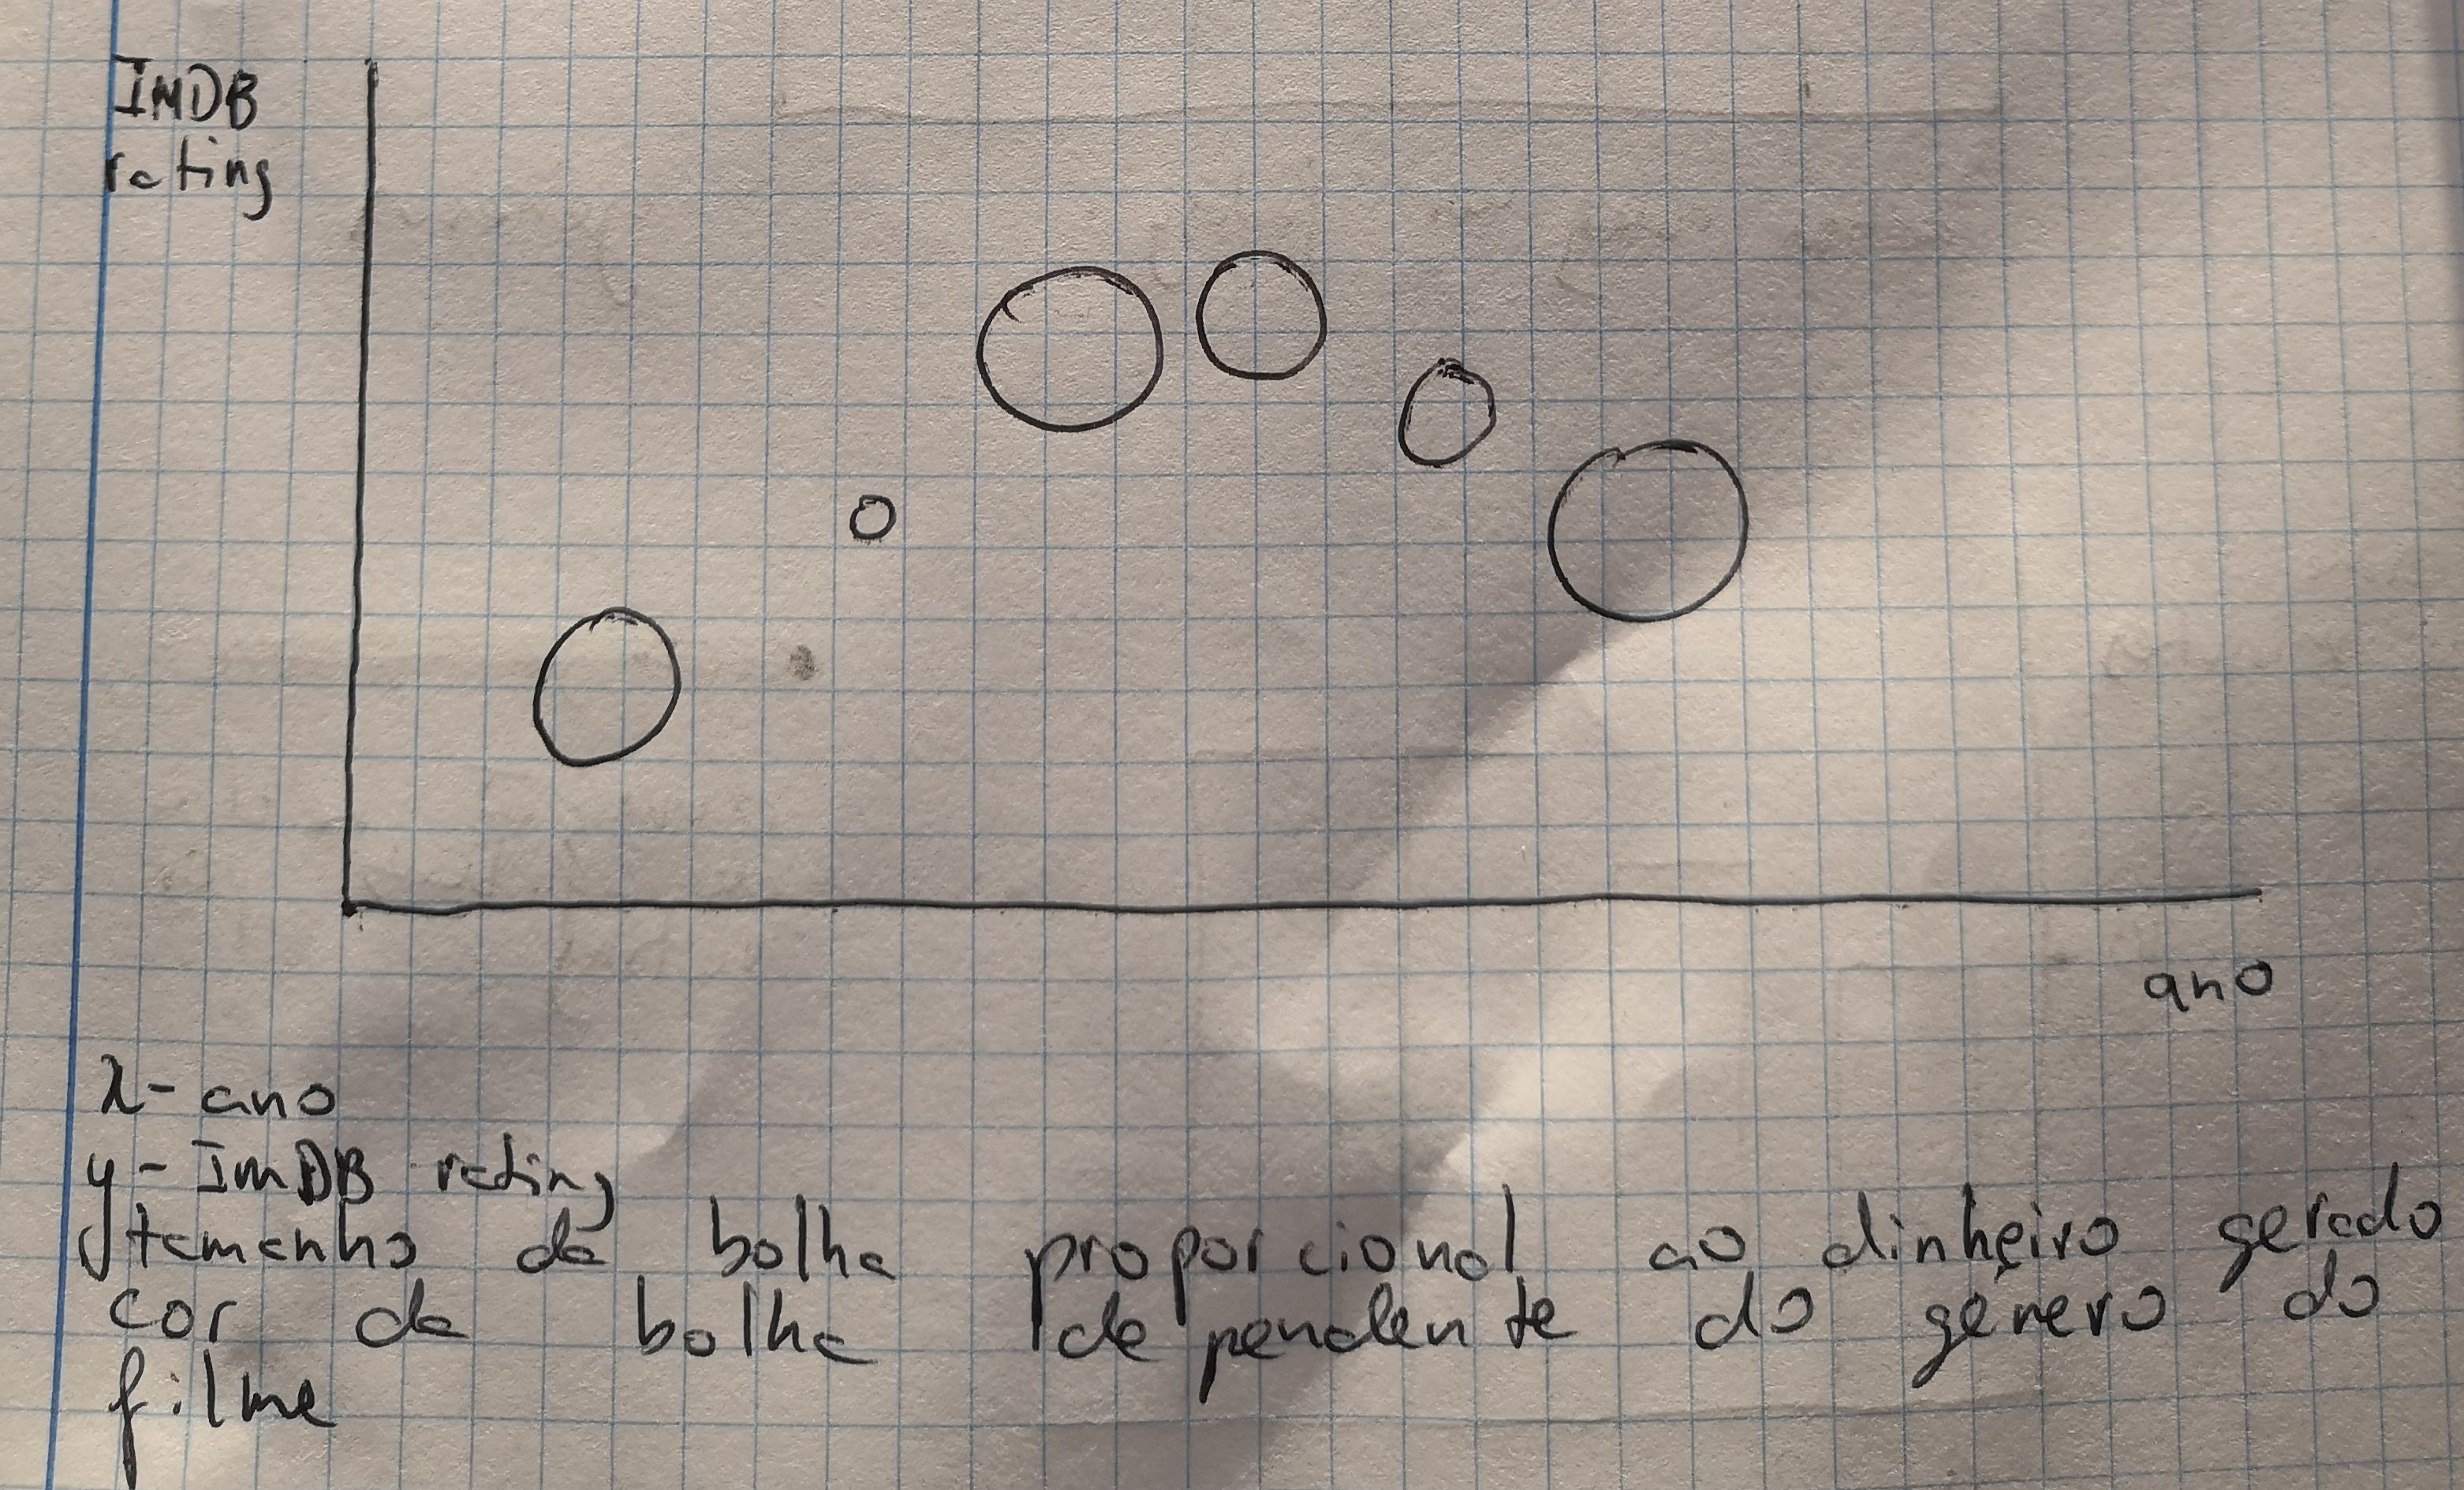 IMDB
rating
ano
x- ano
y- ImDB rating
tamanho da bolha proporcional ao dinheiro gerado
cor da bolha dependente do género do
filme